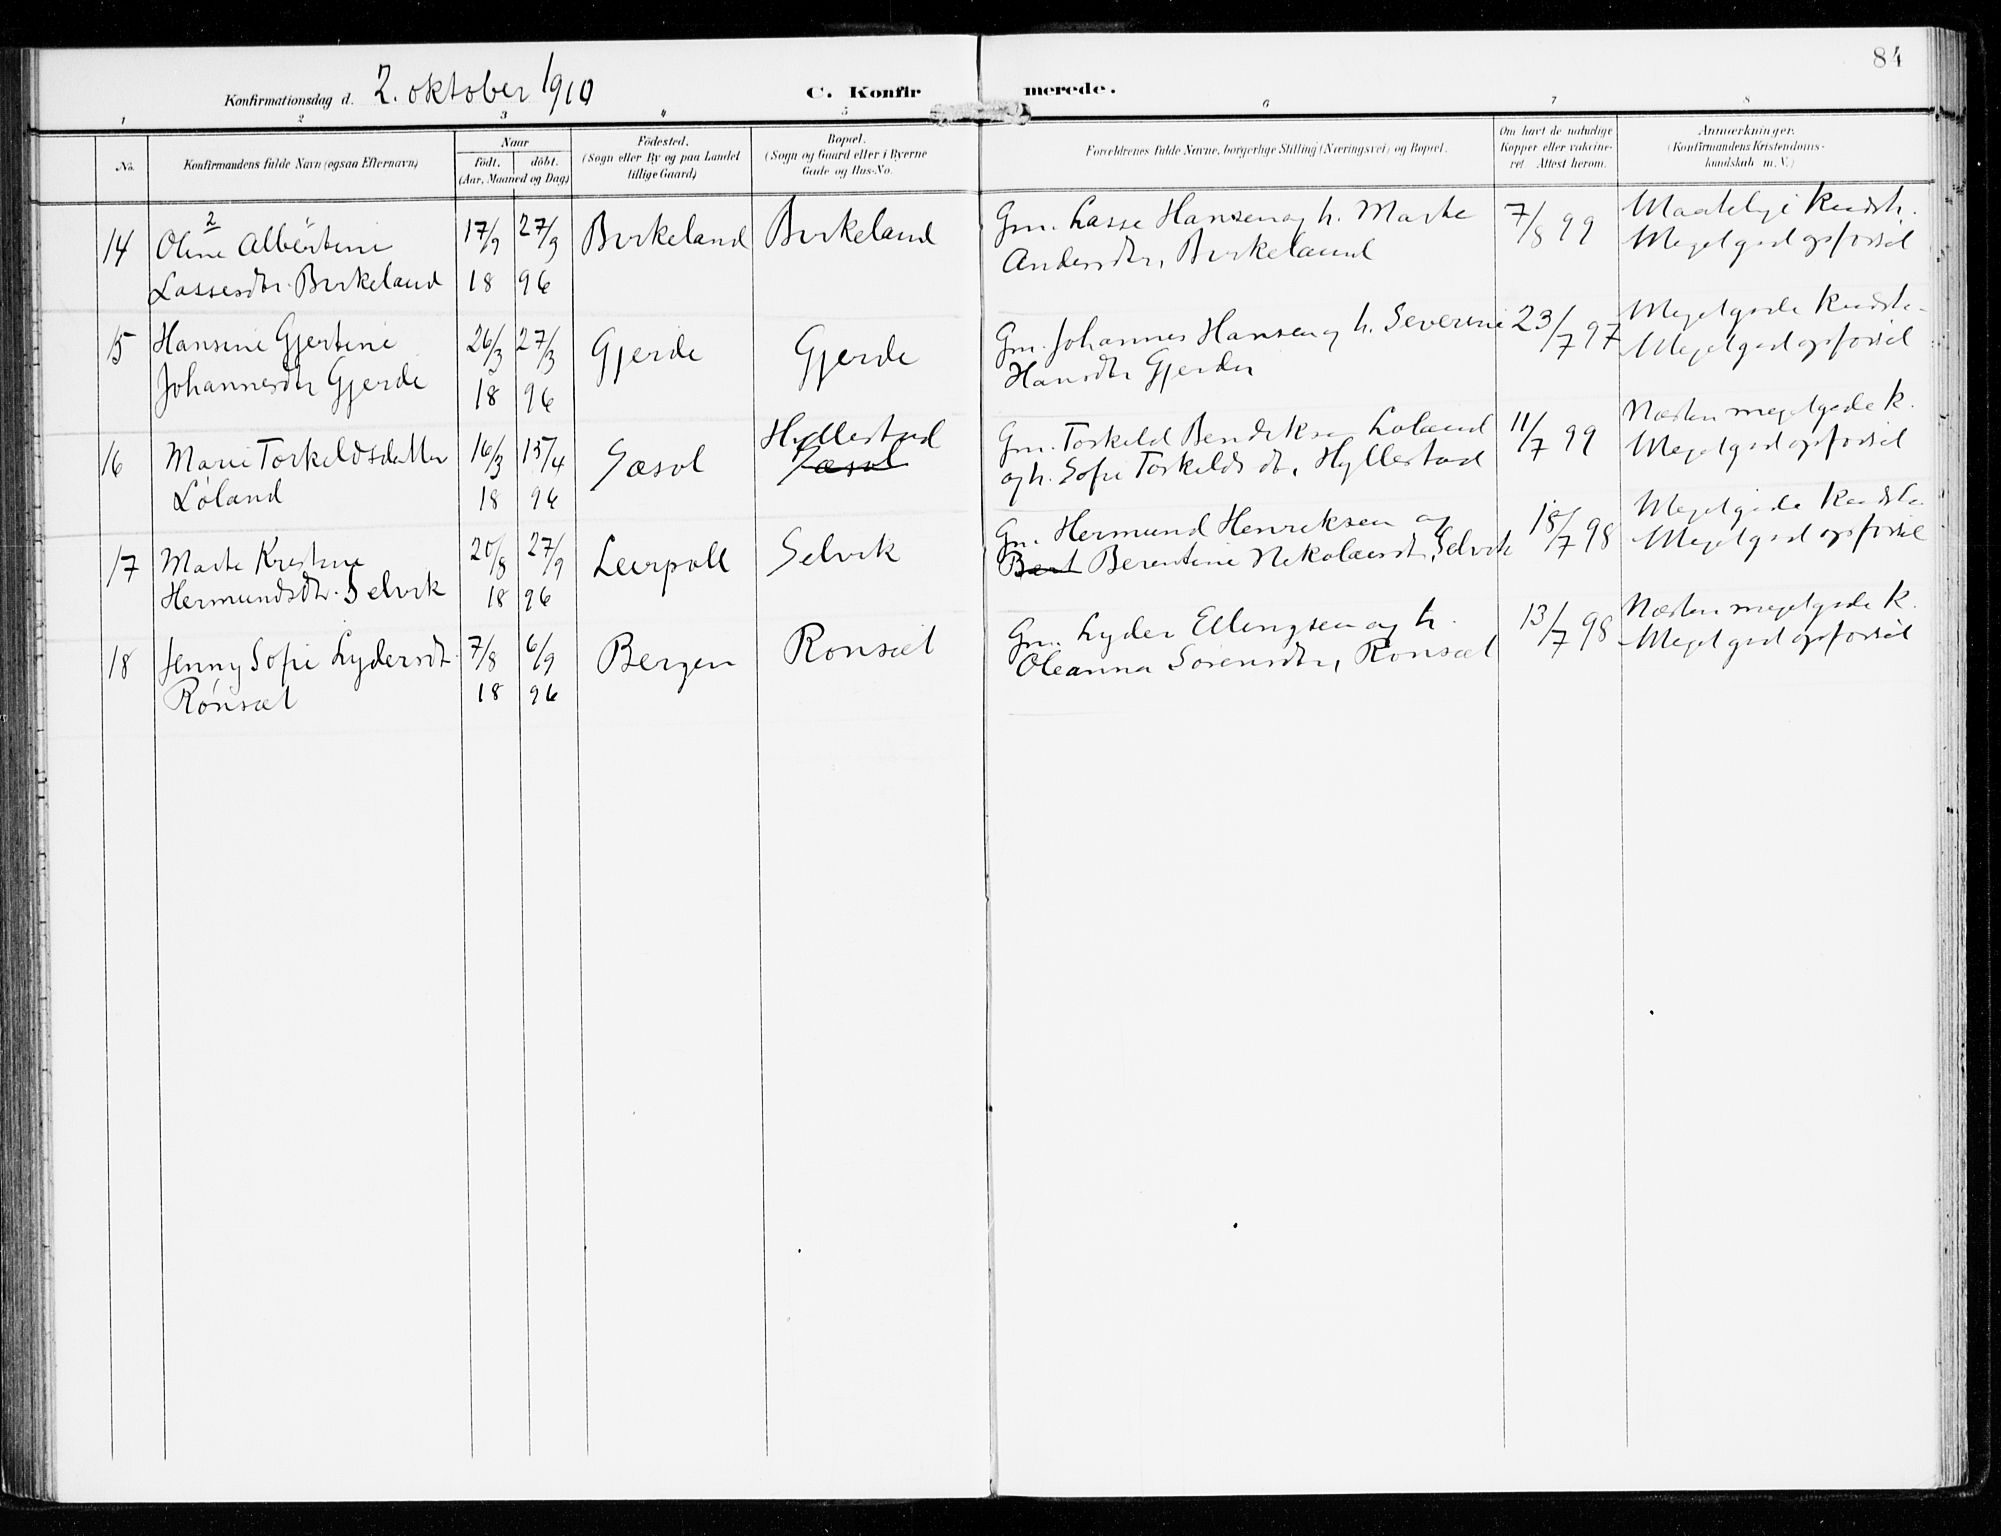 84
Konfirmationsdag d. 2. oktober 1910
C. Konfirmerede.
1 2 3 4 5 6 7 8
No.
Konfirmandens fulde Navn (ogsaa Efternavn)
Naar
födt. döbt.
(Aar, Maaned og Dag)
Födested.
(Sogn eller By og paa Landet
tillige Gaard)
Bopæl.
(Sogn og Gaard eller i Byerne
Gade og Hus-No.
Forældrenes fulde Navne, borgerlige Stilling (Næringsvei) og Bopæl.
Om havt de naturlige
Kopper eller vakcine-
ret Attest herom.
Anmærkninger.
(Konfirmandens Kristendoms-
kundskab m. V.)
14
2
Oline Albertine
Lassesdtr. Birkeland
17/9 27/9
18 96
Birkeland
Birkeland
Gm. Lasse Hansen og h. Marte
Andersdtr, Birkeland
7/8 99
Maatelige Kundsk.
Meget god opførsel
15
Hansine Gjertine
Johannesdtr Gjerde
26/3 27/3
18 96
Gjerde
Gjerde
Gm. Johannes Hansen og h. Severine
Hansdtr Gjerde
23/7 97
Meget gode Kundsk.
Meget god opførsel
16
Marie Torkeldsdatter
Løland
16/3 15/4
18 96
Sæsol
Hyllestad
Sæsol
Gm. Torkeld Bendiksen Løland
og h. Sofie Torkeldsdt, Hyllestad
11/7 99
Næsten meget gode K.
Meget god opførsel
17
Marte Kristine
Hermundsdtr. Selvik
20/8 27/9
18 96
Leirpoll
Selvik
Gm. Hermund Henriksen og
Bert Berentine Nikolaisdtr, Selvik
18/7 98
Meget gode Kundsk.
Meget god opførsel
18
Jenny Sofie Lydersdt.
Rønset
7/8 6/9
18 96
Bergen
Rønset
Gm. Lyder Ellingsen og h.
Oleanna Sørensdtr, Rønset
13/7 98
Næsten meget gode K.
Meget god opførsel